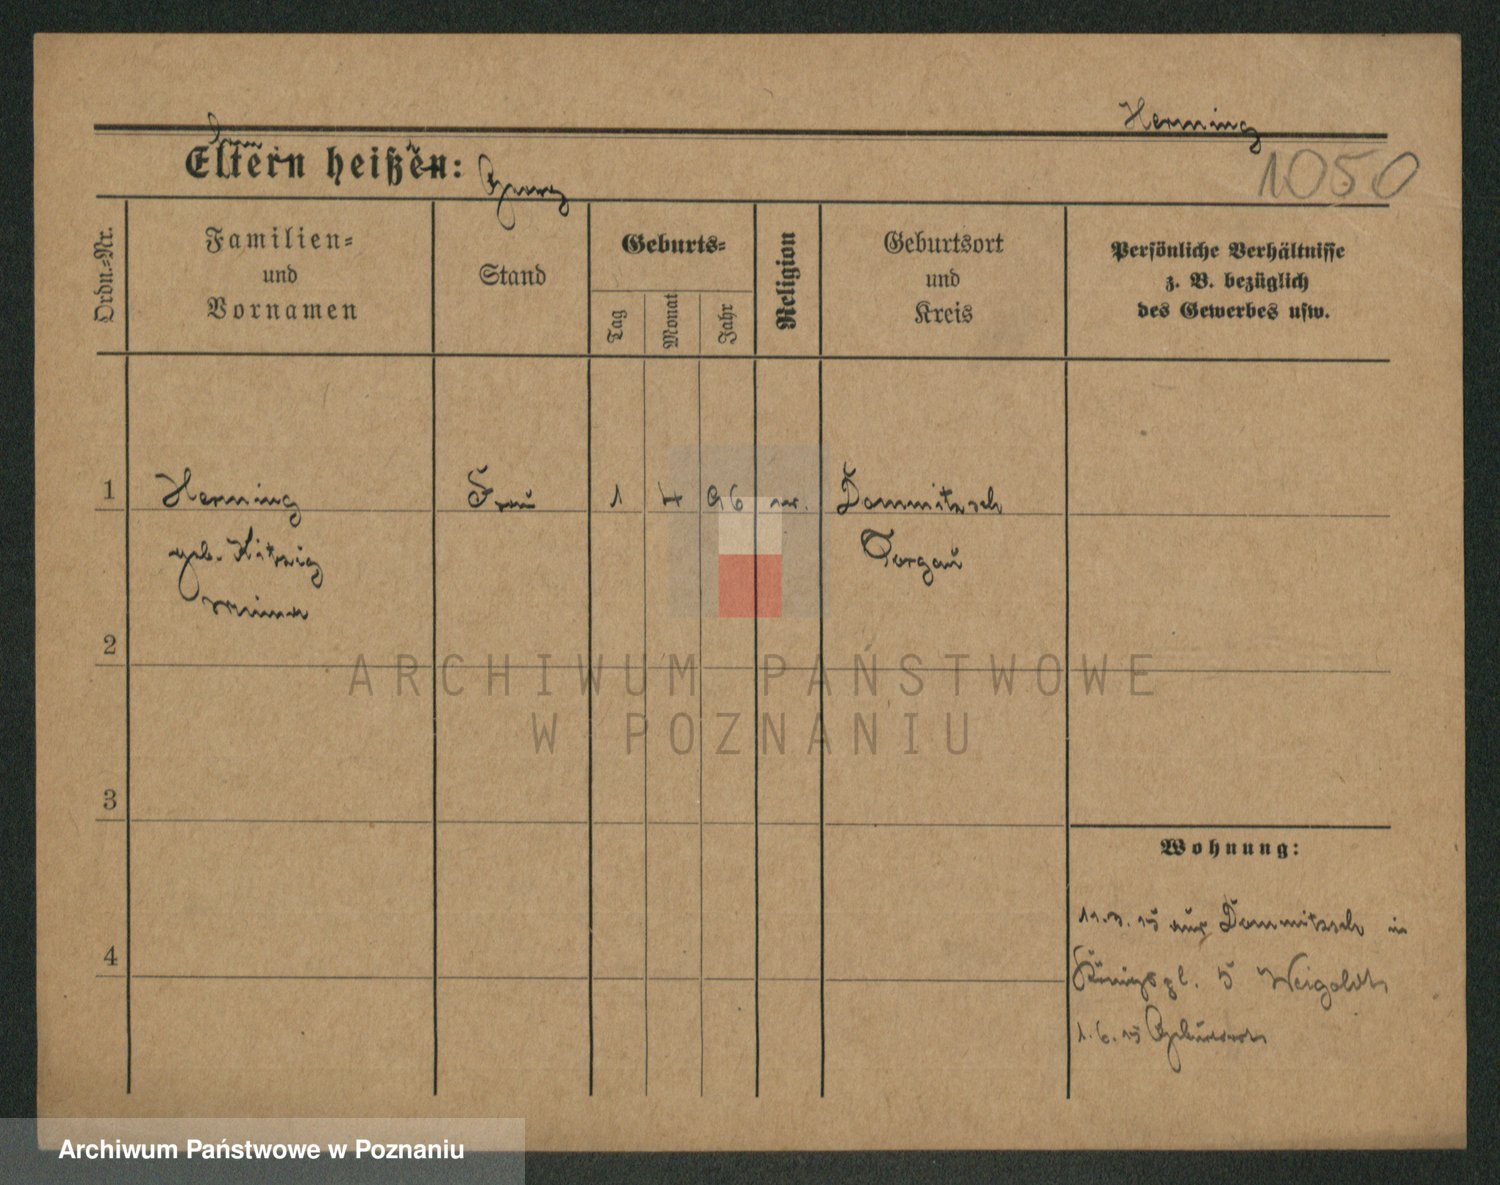 Henning
1050
Eltern heißen:
Ordn.-Nr.
Familien-
und
Vornamen
Stand
Geburts-
Tag
Monat
Jahr
Religion
Geburtsort
und
Kreis
Persönliche Verhältnisse
z. B. bezüglich
des Gewerbes usw.
1
Henning
Frau
1
4
96
Dommitzsch
geb.
Torgau
Minna
2
ARCHIWUM PAŃSTWOWE
W POZNANIU
3
Wohnung:
15 aus Dommitzsch in
4
Königspl. 5
1. 6. 15
Archiwum Państwowe w Poznaniu